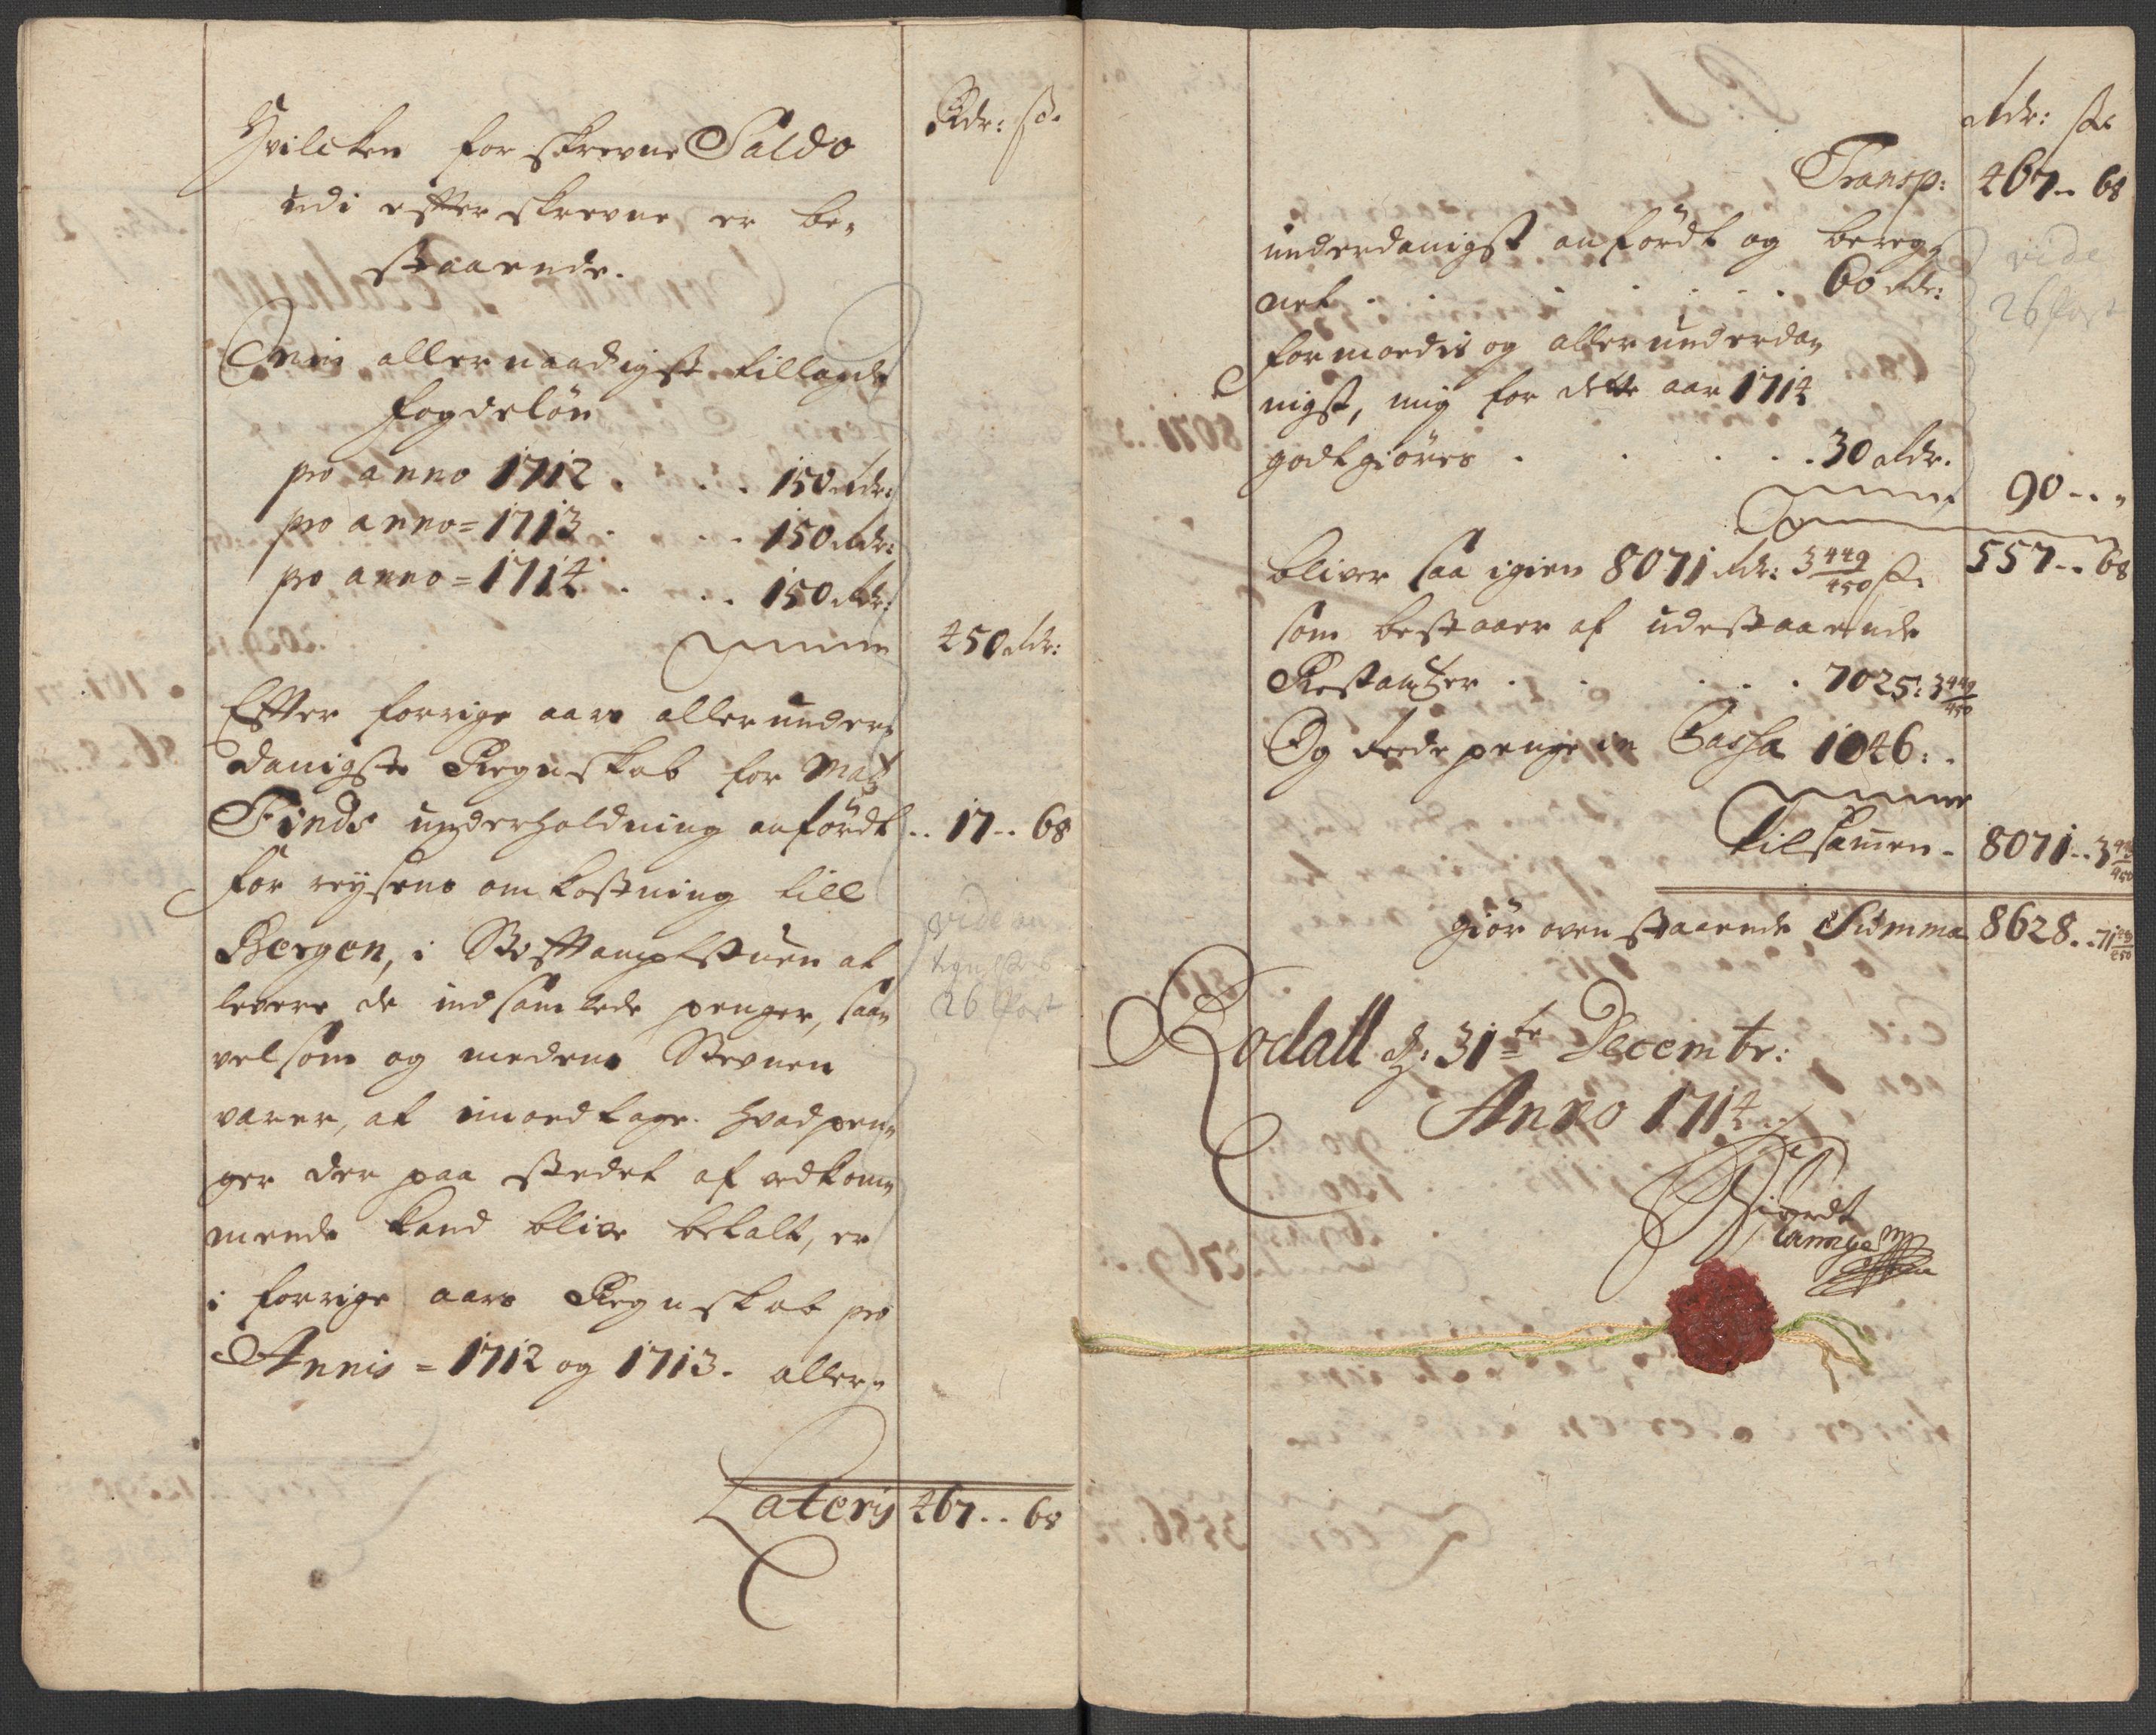 Rdr: ß.
Hvilcken forskrevne Saldo
udi efterskrevne er be„
staaende.
Min allernaadigst tillagde
fogdeløn
pro anno 1712 . . . 150 rdr:
pro anno = 1713 . . . 150 rdr:
pro anno = 1714 . . . 150 rdr:
450 rdr:
Efter forrige aars allerunder„
danigste Regnskab for Matz
Finds underholdning anfördt .. 17 .. 68
for reysens omkostning till
Bergen, i Stiftamptstuen at
levere de indsamlede penger, saa„
velsom og medens Stevnen
varer, at imodtage. hvad pen„
ger der paa stedet af vedkom„
mende kand blive betalt, er
i forrige aars Regnskab pro
Annis = 1712 og 1713. aller„
vide
26 Post
Lateris 467 .. 68
rdr: ß.
Transp: 467 .. 68
underdanigst anfördt og bereg„
net . . . . . . 60 rdr:
vide
26 Post
formodes og allerunderda„
nigst, mig for dette aar 1714
godtgiöres . . . . 30 rdr.
90 .. „
557 .. 68
bliver saa igien 8071 rdr: 3 449/450 ß.
som bestaaer af udestaaende
Restantzer . . . . . 7025: 3 449/450
Og rede penge in Cassa 1046: .
tilsamen - 8071 .. 3 449/450
giör ovenstaaende Summa 8628 .. 71 449/450
Rodall d: 31te Decembr:
Anno 1714
Siverdt
Lange